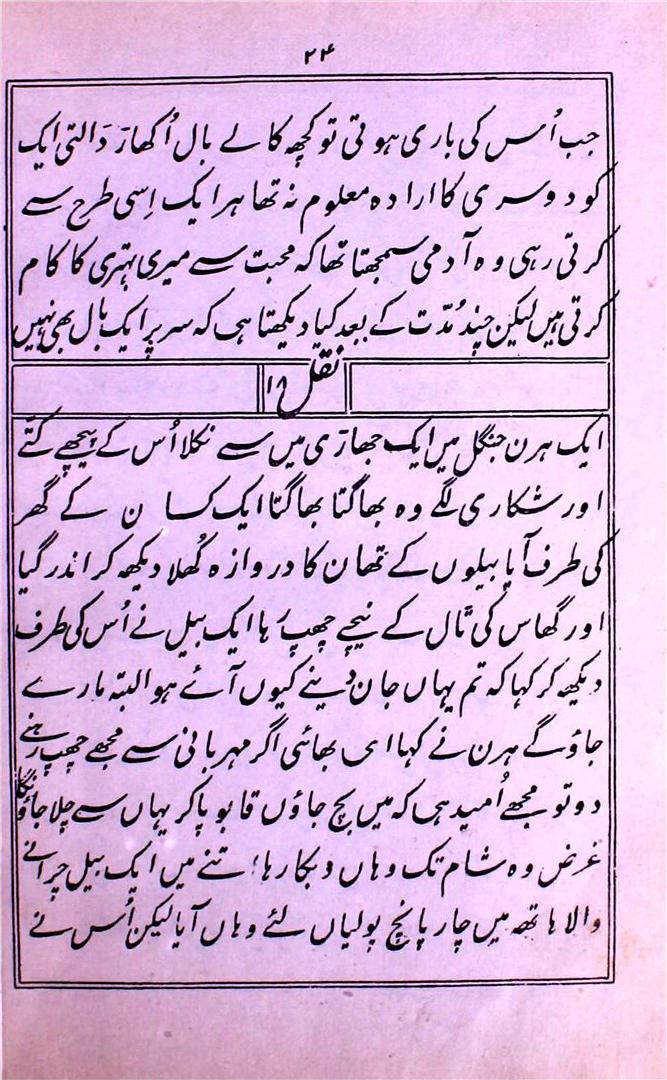 ۲۴
جب اُس کی باری ہوتی تو کچھ کالے بال اُکھاڑ دالتی ایک
کو دوسری کا ارادہ معلوم نہ تھا ہر ایک اِسی طرح سے
کرتی رہی وہ آدمی سمجھتا تھا کہ محبت سے میری بہتری کا کام
کرتی ہیں لیکن چند مُدّت کے بعد کیا دیکھتا ہی کہ سر پر ایک بال بھی نہیں
نقل
ایک ہرن جنگل میں ایک جھاڑی میں سے نکلا اُس کے پیچھے کتّے
اور شکاری لگے وہ بھاگتا بھاگتا ایک کسان کے گھر
کی طرف آیا بیلوں کے تھان کا دروازہ کُھلا دیکھ کر اندر گیا
اور گھاس کی ٹال کے نیچے چھپ رہا ایک بیل نے اُس کی طرف
دیکھ کر کہا کہ تم یہاں جان دینے کیوں آئے ہو البتہ مارے
جاؤ گے ہرن نے کہا ای بھائی اگر مہربانی سے مجھے چھپ رہنے
دو تو مجھے اُمید ہی کہ میں بچ جاؤں قابو پا کر یہاں سے چلا جاؤنگا
غرض وہ شام تک وہاں دبکا رہا اتنے میں ایک بیل چرانے
والا ہاتھ میں چار پانچ پولیاں لئے وہاں آیا لیکن اُس نے